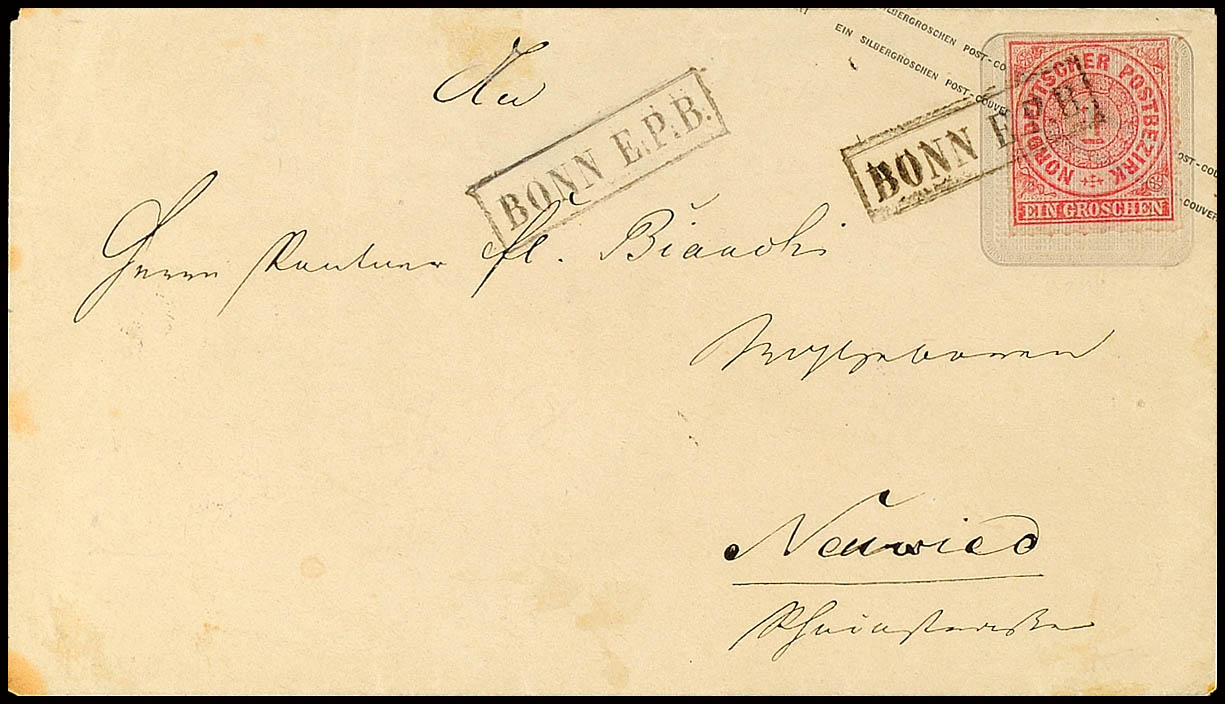 EIN SILBERGROSCHEN POST-COUVERT
EIN SILBERGROSCHEN POST-COUVERT
NORDDEUTSCHER POSTBEZIRK
1
EIN GROSCHEN
BONN E.P.B.
BONN E.P.B.
An
Herrn Rentner Fl. Bianchi
Wohlgeboren
Neuwied
Rheinstraße